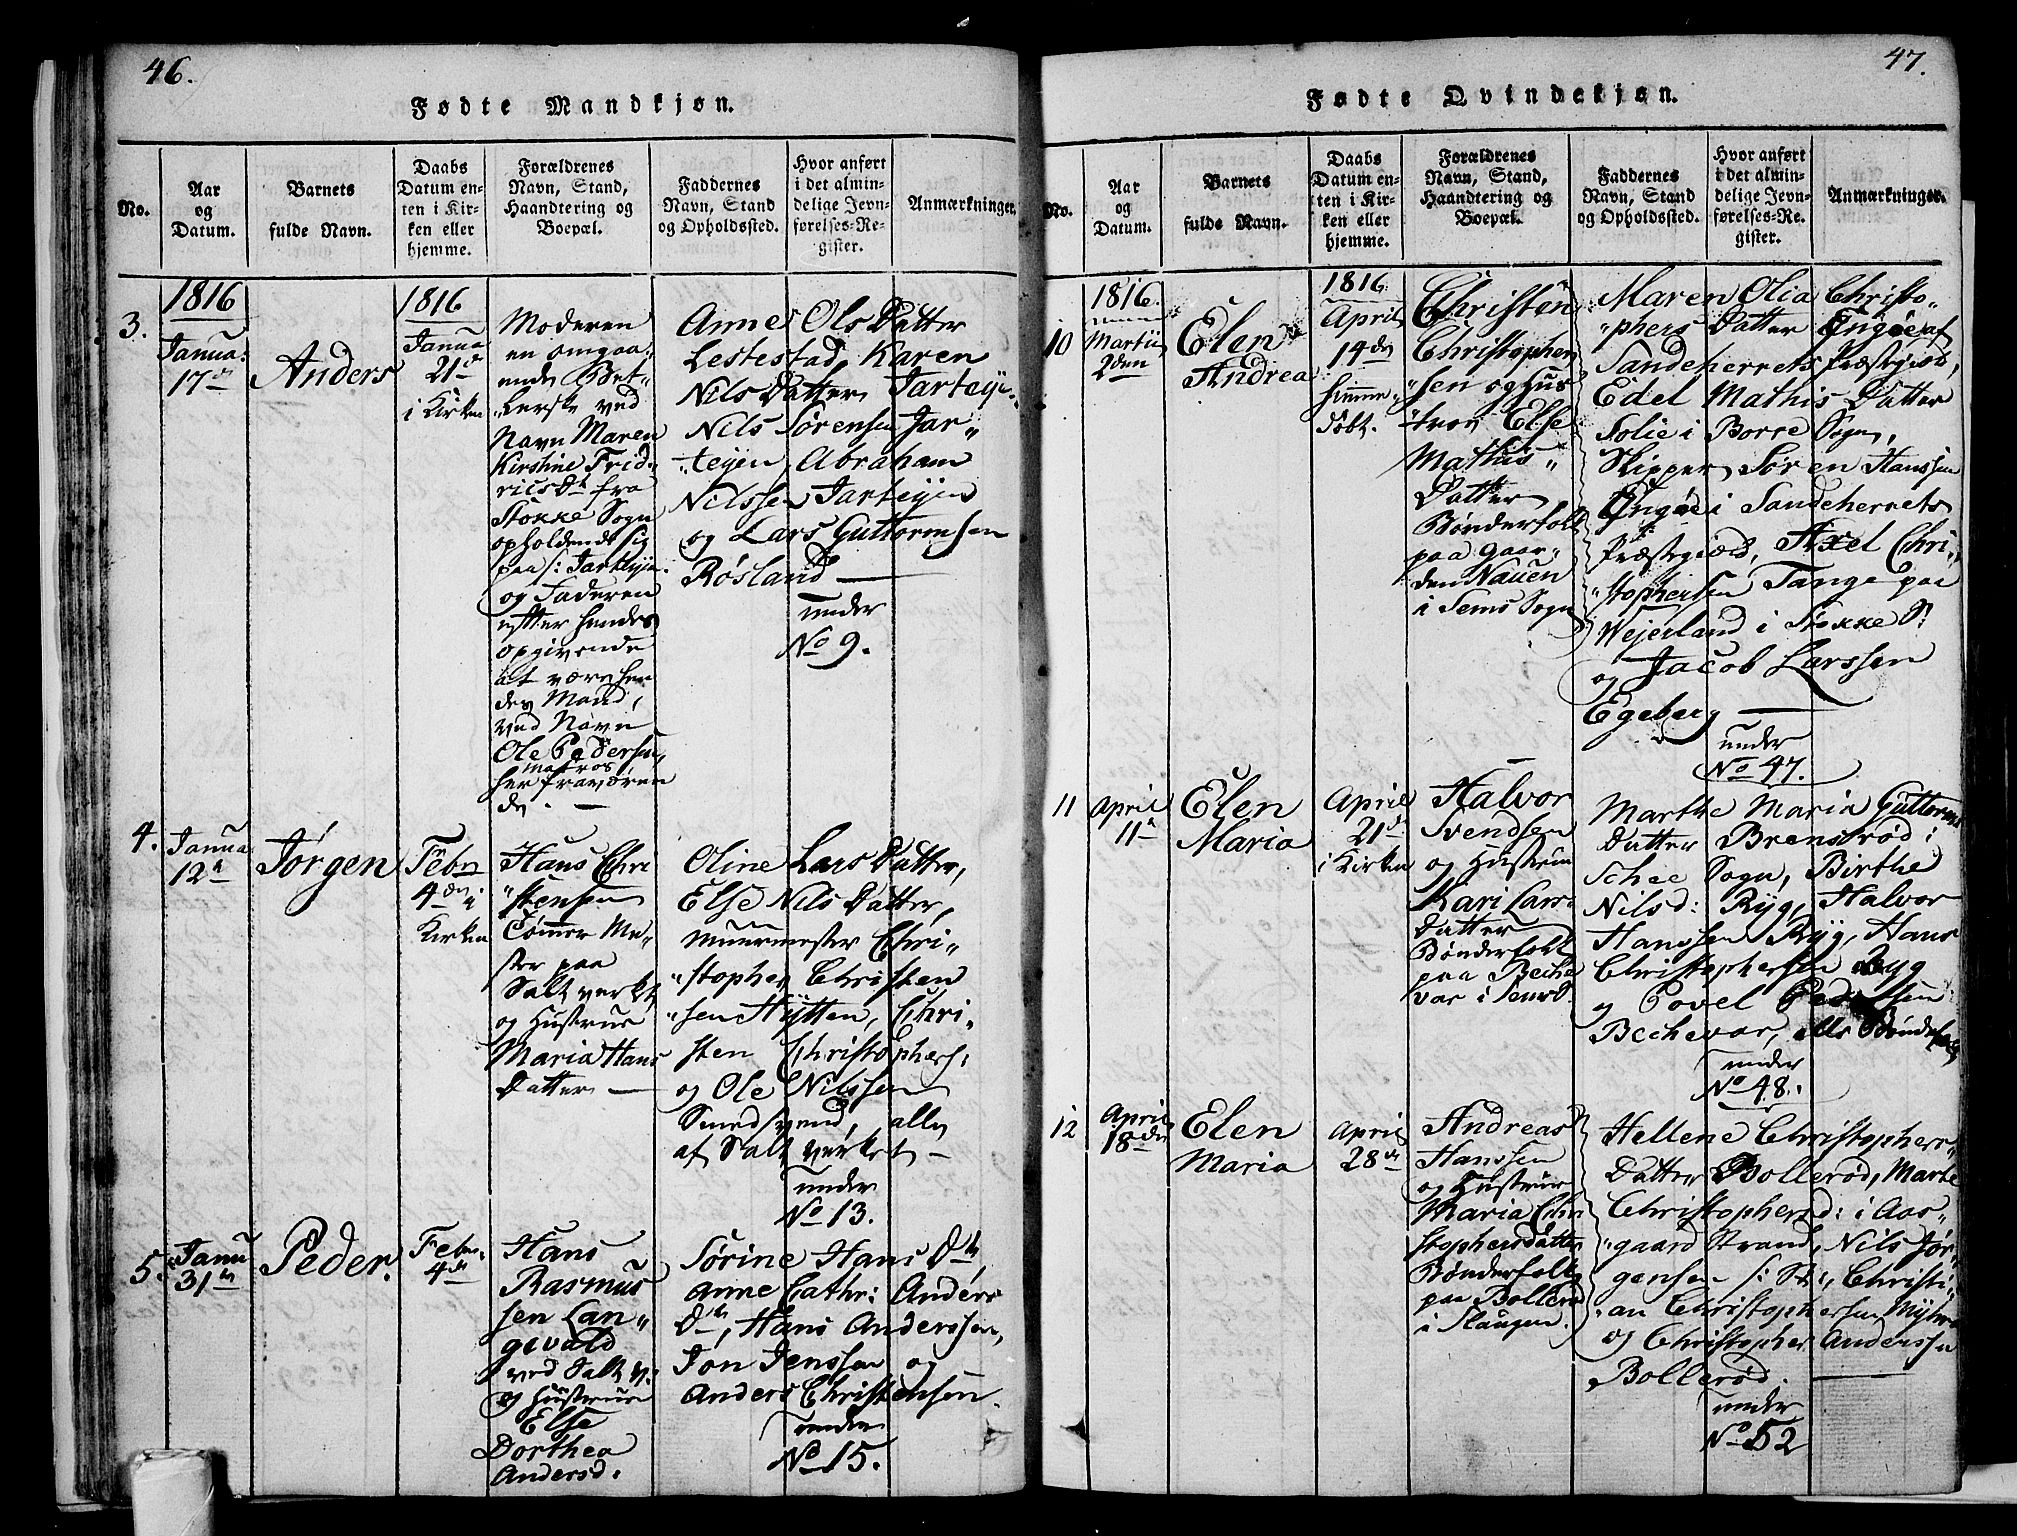 46.
Fødte Mandkjøn.
No.
Aar
og
Datum.
Barnets
fulde Navn.
Daabs
Datum en-
ten i Kir-
ken eller
hjemme.
Forældrenes
Navn, Stand,
Haandtering og
Boepæl.
Faddernes
Navn, Stand
og Opholdssted.
Hvor anført
i det almin-
delige Jevn-
førelses-Re-
gister.
Anmærkninger.
3.
1816
Janua:
17d
Anders
1816
Janua
21d
i Kirken
Moderen
en omgaa-
ende Bet-
lerske ved
Navn Maren
Kirstine Frid-
ricsDtr fra
Stokke Sogn
opholdende sig
paa s: Jarteyen
og Faderen
efter hendes
opgivende
at være hen
des Mand,
ved Navn
Ole Pedersen
matros
her fraværen
de. —
Anne Ols Datter
Lestestad, Karen
Nils Datter Jarteye
Nils Sørensen Jar-
teyen, Abraham
Nilssen Jarteyen
og Lars Guttormsen
Røsland —
under
No 9.
4.
Janua
12d
Jørgen
Febr
4den i
Kirken
Hans Chri
stensen
Tømmer Me-
ster paa
Saltverket
og Hustrue
Maria Hans
Datter —
Oline Lars Datter,
Else Nils Datter,
Muurmester Chri-
stopher Christen
sen Hytten, Chri-
sten Christophers:
og Ole Nilssen
Smedsvend, alle
af Saltverket —
under
No 13.
5.
Janu
31te
Peder.
Febr:
4de
Hans
Rasmus
sen Lan-
gevald
ved Saltv:
og Hustrue
Else
Dorthea
Andersd:
Sørine Hans Dtr,
Anne Cathr: Anders
Dtr, Hans Anderssen,
Jon Jenssen og
Anders Christensen.
under
No 15.
47.
Fødte Qvindekjøn.
No.
Aar
og
Datum.
Barnets
fulde Navn.
Daabs
Datum en-
ten i Kir-
ken eller
hjemme.
Forældrenes
Navn, Stand,
Haandtering og
Boepæl.
Faddernes
Navn, Stand
og Opholdssted.
Hvor anført
i det almin-
delige Jevn-
førelses-Re-
gister.
Anmærkninger.
10
1816.
Martii
2den
Elen
Andrea
1816
April
14de
hjemme-
døbt.
Christen
Christopher
sen og Hus
troe Else
Mathis-
Datter
Bønderfolk
paa Gaar-
den Nauen
i Sems Sogn
Maren Olia Christo-
phers Datter Engøe af
Sandeherrets Præstegield,
Edel Mathis Datter
Solie i Borre Sogn,
Skipper Søren Hanssen
Engøe i Sandeherrets
Præstegield, Axel Chri-
stophersen Tange paa
Wejerland i Stokke S:
og Jacob Larssen
Egeberg —
under
No 47.
11
April
11d
Elen
Maria
April
21d
i Kirken
Halvor
Svendsen
og Hustrue
Kari Lars
Datter
Bønderfolk
paa Beche
var i Sems S.
Marthe Maria Guttorms
Datter Brensrød i
Schee Sogn, Birthe
Nilsd: Ryg, Halvor
Hanssen Ryg, Hans
Christophersen Byg
og Povel Pedersen
Bechevar, alle Bøndefolk
under
No 48.
12
April
18de
Elen
Maria
April
28de
Andreas
Hanssen
og Hustrue
Maria Chri
stophersdatter
Bønderfolk
paa Bollerød
i Slaugen.
Hellene Christopher-
Datter Bollerød, Marte
Christophersd: i Aas-
gaardstrand, Nils Jør-
gensen s: St:, Christi-
an Christophersen Myhre
og Christopher Anderssen
Bollerød. —
under
No 52